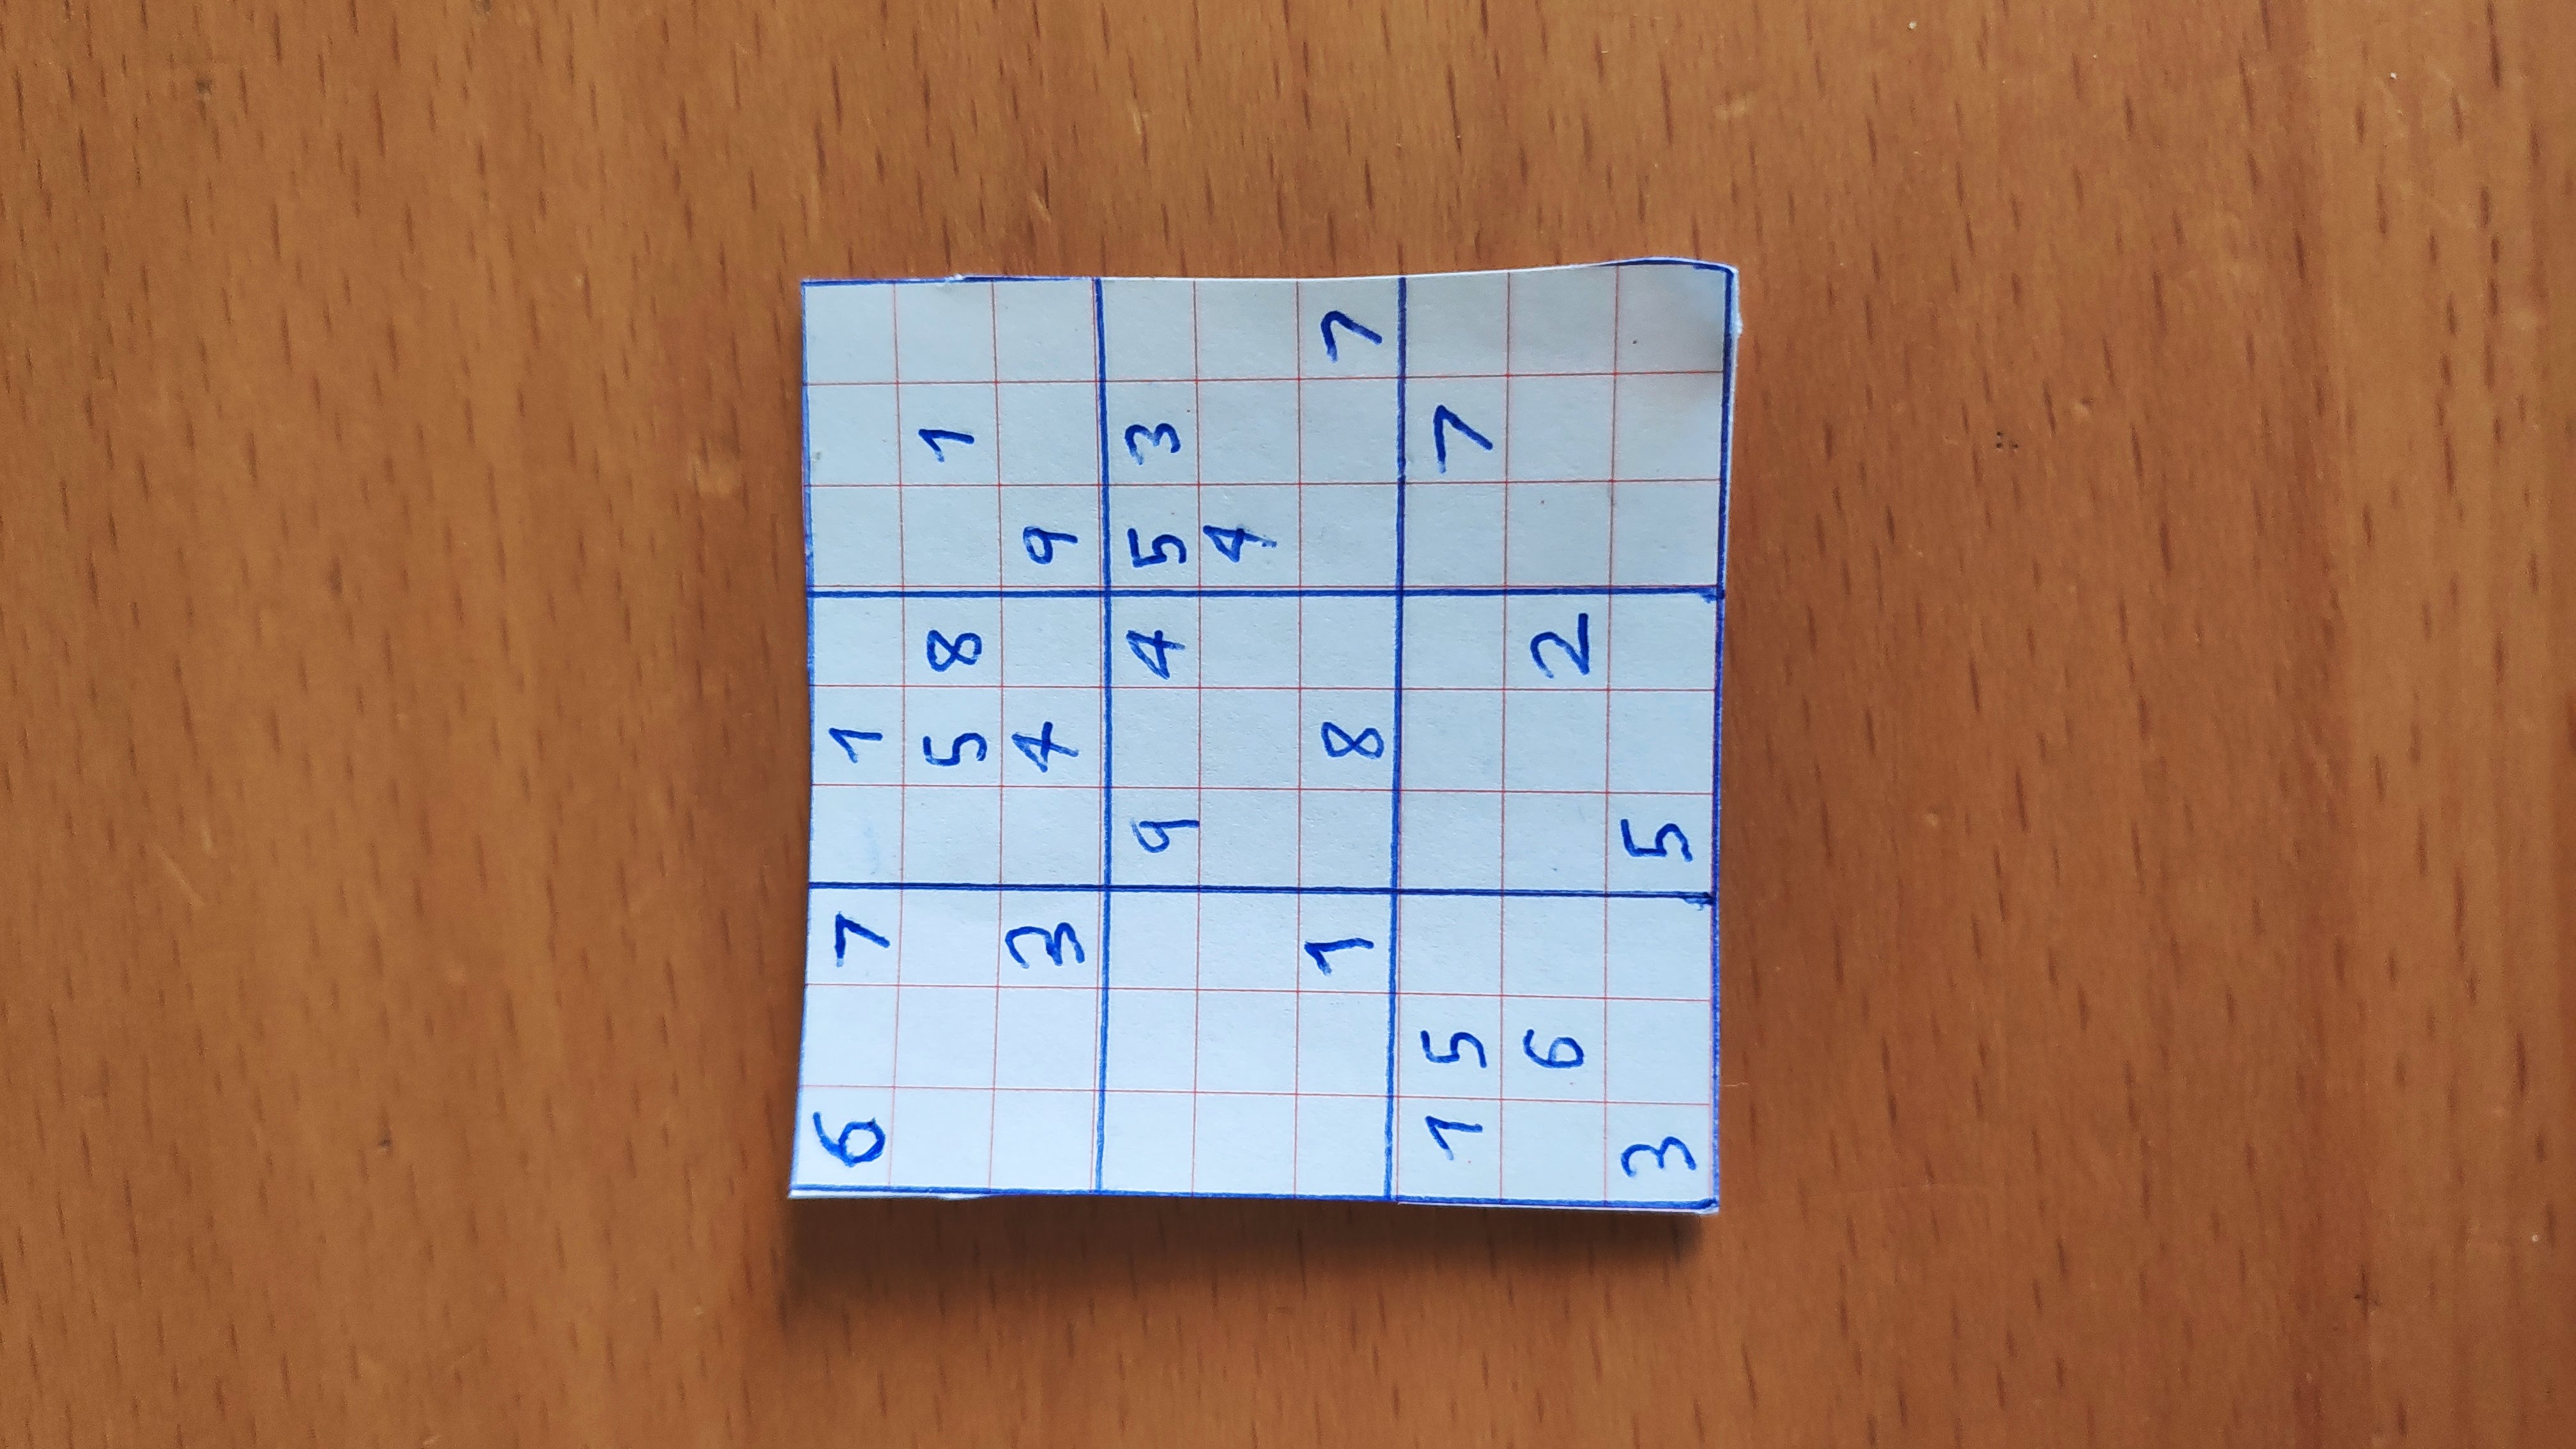 6 7 1
5 8 1
3 4 9
9 4 5 3
4
1 8 7
1 5 7
6 2
3 5